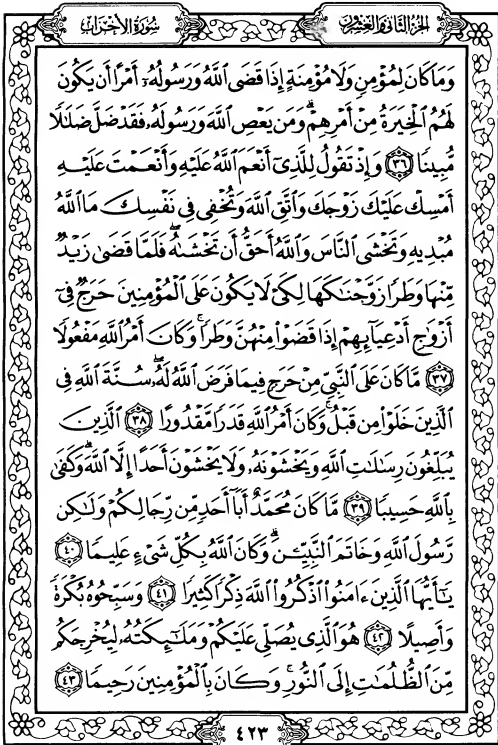 الجزء الثاني والعشرين
سورة الأحزاب
وَمَا كَانَ لِمُؤْمِنٍ وَلَا مُؤْمِنَةٍ إِذَا قَضَى ٱللَّهُ وَرَسُولُهُۥٓ أَمْرًا أَن يَكُونَ
لَهُمُ ٱلْخِيَرَةُ مِنْ أَمْرِهِمْ ۗ وَمَن يَعْصِ ٱللَّهَ وَرَسُولَهُۥ فَقَدْ ضَلَّ ضَلَٰلًا
مُّبِينًا ٣٦ وَإِذْ تَقُولُ لِلَّذِىٓ أَنْعَمَ ٱللَّهُ عَلَيْهِ وَأَنْعَمْتَ عَلَيْهِ
أَمْسِكْ عَلَيْكَ زَوْجَكَ وَٱتَّقِ ٱللَّهَ وَتُخْفِى فِى نَفْسِكَ مَا ٱللَّهُ
مُبْدِيهِ وَتَخْشَى ٱلنَّاسَ وَٱللَّهُ أَحَقُّ أَن تَخْشَىٰهُ ۖ فَلَمَّا قَضَىٰ زَيْدٌ
مِّنْهَا وَطَرًا زَوَّجْنَٰكَهَا لِكَىْ لَا يَكُونَ عَلَى ٱلْمُؤْمِنِينَ حَرَجٌ فِىٓ
أَزْوَٰجِ أَدْعِيَآئِهِمْ إِذَا قَضَوْا۟ مِنْهُنَّ وَطَرًا ۚ وَكَانَ أَمْرُ ٱللَّهِ مَفْعُولًا
٣٧ مَّا كَانَ عَلَى ٱلنَّبِىِّ مِنْ حَرَجٍ فِيمَا فَرَضَ ٱللَّهُ لَهُۥ ۖ سُنَّةَ ٱللَّهِ فِى
ٱلَّذِينَ خَلَوْا۟ مِن قَبْلُ ۚ وَكَانَ أَمْرُ ٱللَّهِ قَدَرًا مَّقْدُورًا ٣٨ ٱلَّذِينَ
يُبَلِّغُونَ رِسَٰلَٰتِ ٱللَّهِ وَيَخْشَوْنَهُۥ وَلَا يَخْشَوْنَ أَحَدًا إِلَّا ٱللَّهَ ۗ وَكَفَىٰ
بِٱللَّهِ حَسِيبًا ٣٩ مَّا كَانَ مُحَمَّدٌ أَبَآ أَحَدٍ مِّن رِّجَالِكُمْ وَلَٰكِن
رَّسُولَ ٱللَّهِ وَخَاتَمَ ٱلنَّبِيِّـۧنَ ۗ وَكَانَ ٱللَّهُ بِكُلِّ شَىْءٍ عَلِيمًا ٤٠
يَٰٓأَيُّهَا ٱلَّذِينَ ءَامَنُوا۟ ٱذْكُرُوا۟ ٱللَّهَ ذِكْرًا كَثِيرًا ٤١ وَسَبِّحُوهُ بُكْرَةً
وَأَصِيلًا ٤٢ هُوَ ٱلَّذِى يُصَلِّى عَلَيْكُمْ وَمَلَٰٓئِكَتُهُۥ لِيُخْرِجَكُم
مِّنَ ٱلظُّلُمَٰتِ إِلَى ٱلنُّورِ ۚ وَكَانَ بِٱلْمُؤْمِنِينَ رَحِيمًا ٤٣
٤٢٣